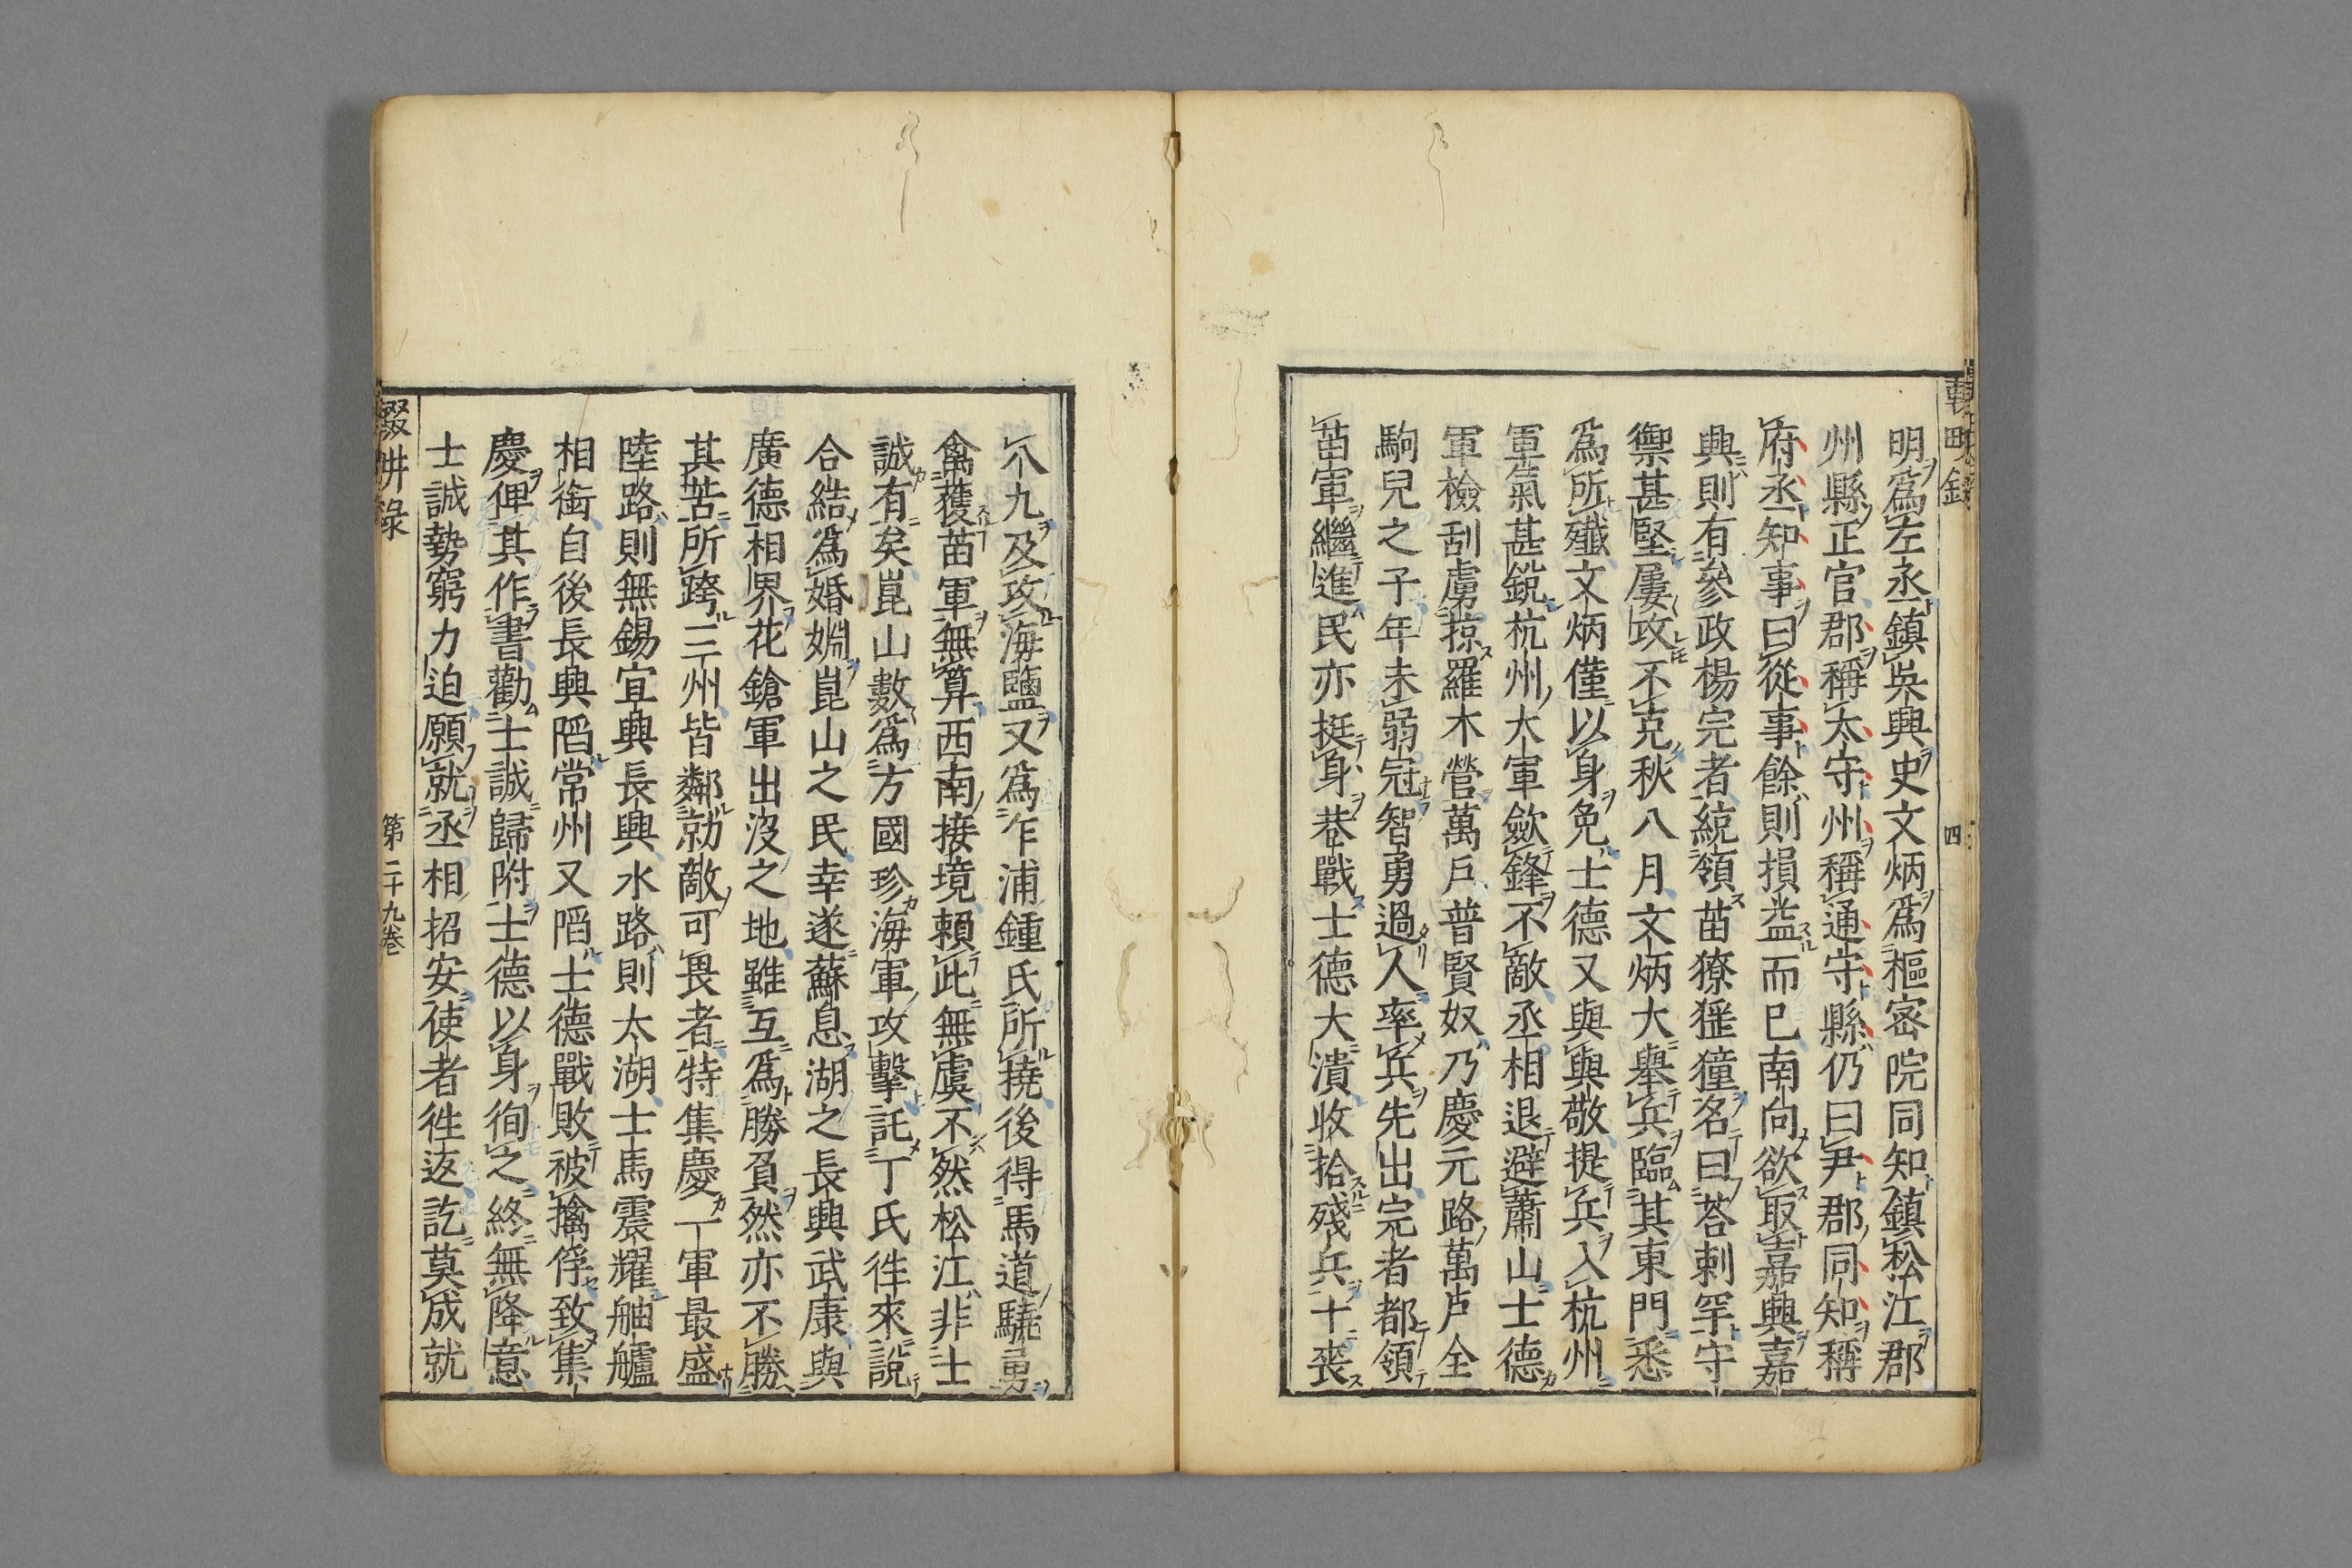 輟耕錄
四
明爲左丞鎮吳興史文炳爲樞密院同知鎮松江郡
州縣正官郡稱太守州稱通守縣仍曰尹郡同知稱
府丞知事曰從事餘則損益而已南向欲取嘉興嘉
興則有參政楊完者統領苗獠猺獞名曰荅剌罕守
禦甚堅屢攻不克秋八月文炳大舉兵臨其東門悉
爲所殱文炳僅以身免士德又與與敬提兵入杭州
軍氣甚銳杭州大軍歛鋒不敵丞相退避蕭山士德
軍檢刮虜掠羅木營萬戶普賢奴乃慶元路萬戶全
駒兒之子年未弱冠智勇過人率兵先出完者都領
苗軍繼進民亦挺身巷戰士德大潰收拾殘兵十喪
八九及攻海鹽又爲乍浦鍾氏所撓後得馬道驍勇
禽獲苗軍無算西南接境賴此無虞不然松江非士
誠有矣崑山數爲方國珍海軍攻擊託丁氏徃來說
合結爲婚姻崑山之民幸遂蘇息湖之長興武康與
廣德相界花鎗軍出沒之地雖互爲勝負然亦不勝
其苦所跨三州皆鄰勍敵可畏者特集慶一軍最盛
陸路則無錫宜興長興水路則太湖士馬震耀舳艫
相銜自後長興陷常州又陷士德戰敗被擒俘致集
慶俾其作書勸士誠歸附士德以身徇之終無降意
士誠勢窮力迫願就丞相招安使者徃返訖莫成就
輟畊錄
第二十九卷